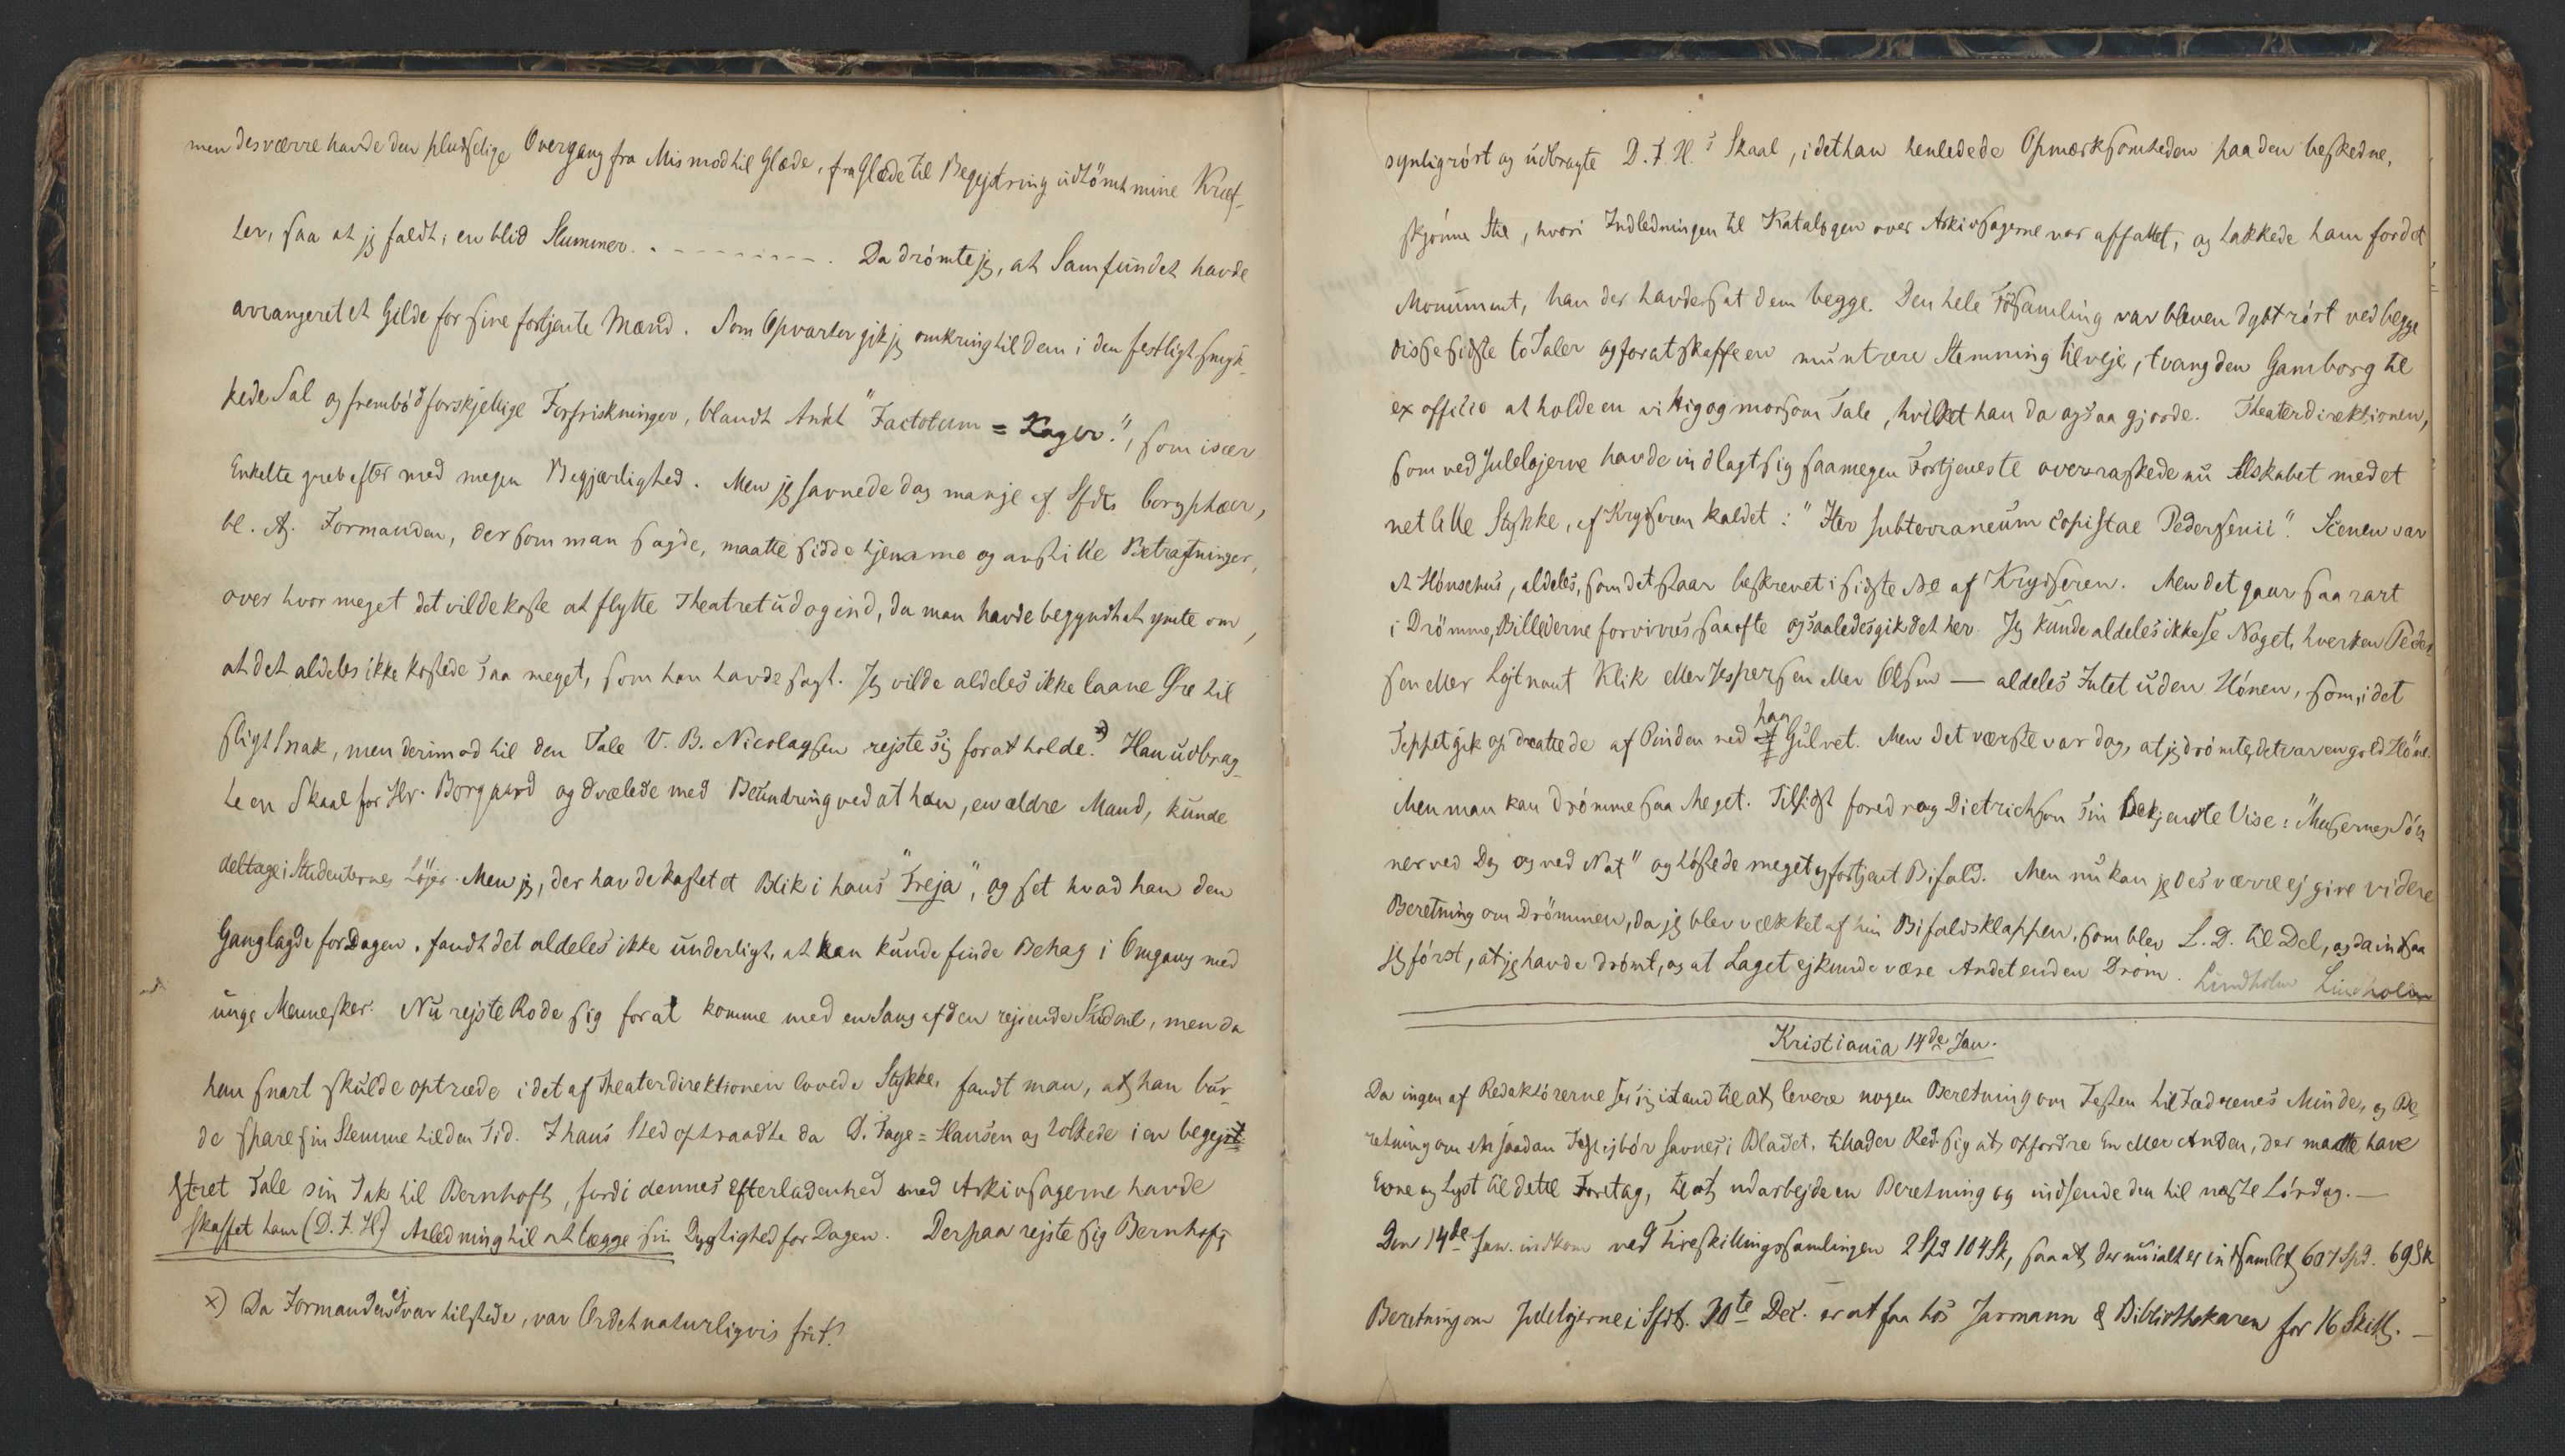 men desværre havde den pludselige Overgang fra Mismod til Glæde, fra Glæde til Begejstring udtömt mine Kræf-
ter, saa at jeg faldt i en blid Slummer. - - - - - - - - - Da drömte jeg, at Samfundet havde
arrangeret et Gilde for sine fortjente Mænd. Som Opvarter gik jeg omkring til dem i den festligt smyk-
kede Sal og fremböd forskjellige Forfriskninger, blandt Andet "Factotum = Kager.", som især
Enkelte greb efter med megen Begjærlighed. Men jeg savnede dog mange af Sfdts Coryphæer,
bl. A. Formanden, der som man sagde, maatte sidde hjemme og anstille Betragtninger,
over hvor meget det vilde koste at flytte Theatret ud og ind, da man havde begyndt at ymte om,
at det aldeles ikke kostede saa meget, som han havde sagt. Jeg vilde aldeles ikke laane Øre til
sligt Snak, men derimod til den Tale V. B. Nicolaysen rejste sig for at holde. x) Han udbrag-
te en Skaal for Hr. Borgaard og dvælede med Beundring ved at han, en ældre Mand, kunde
deltage i Studenternes Löjer. Men jeg, der havde kastet et Blik i hans "Freja", og set hvad han den
Gang lagde for Dagen, fandt det aldeles ikke underligt, at han kunde finde Behag i Omgang med
unge Mennesker. Nu rejste Rode sig for at komme med en Sang af den rejsende Student, men da
han snart skulde optræde i det af Theaterdirektionen lovede Stykke, fandt man, at han bur-
de spare sin Stemme til den Tid. I hans Sted optraadte da D. Faye = Hansen og tolkede i en begejst-
stret Tale sin Tak til Bernhoft, fordi dennes Efterladenhed med Arkivsagerne havde
skaffet ham (D. F. H.) Anledning til at lægge sin Dygtighed for Dagen. Derpaa rejste sig Bernhoft
x) Da Formanden ej var tilstede, var Ordet naturligvis frit!
synlig rört og udbragte D. F. H.s Skaal, idet han henledede Opmærksomheden paa den beskedne,
skjönne Stil, hvori Indledningen til Katalogen over Arkivsagerne var affattet, og takkede ham for det
Monument, han der havde sat dem begge. Den hele Forsamling var bleven dybt rört ved begge
disse sidste to Taler og for at skaffe en muntrere Stemning tilveje, tvang den Gamborg til
ex officio at holde en vittig og morsom Tale, hvilket han da ogsaa gjorde. Theaterdirektionen,
som ved Julelöjerne havde indlagt sig saa megen Fortjeneste overraskede nu Selskabet med et
net lille Stykke, af Krydseren kaldet: "Iter subterraneum copistae Pedersenii". Scenen var
et Hönsehus, aldeles, som det staar beskrevet i sidste No af Krydseren. Men det gaar saa rart
i Drömme, Billederne forvirres saa ofte og saaledes gik det her. Jeg kunde aldeles ikke se Noget, hverken Peder-
sen eller Löjtnant Klik eller Jespersen eller Olsen — aldeles Intet uden Hönen, som, idet
Teppet gik op drattede af Pinden ned paa Gulvet. Men det værste var dog, at jeg drömte, det var en gold Höne.
Men man kan drömme saa Meget. Tilsidst foredrog Dietrichson sin bekjendte Vise: "Musernes Sön-
ner ved Dag og ved Nat" og höstede meget og fortjent Bifald. Men nu kan jeg desværre ej give videre
Beretning om Drömmen, da jeg blev vækket af hin Bifaldsklappen, som blev L. D. til Del, og da indsaa
jeg först, at jeg havde drömt, og at Laget ej kunde være Andet end en Dröm. Lindholm Lindholm
Kristiania 14de Jan.
Da ingen af Redaktörerne ser sig istand til at levere nogen Beretning om Festen til Fædrenes Minde, og Be-
retning om en saadan Fest ej bör savnes i Bladet, tillader Red. sig at opfordre En eller Anden, der maatte have
Evne og Lyst til dette Foretag, til at udarbejde en Beretning og indsende den til næste Lördag. —
Den 14de Jan. indkom ved Fireskillingssamlingen 2 Spd 104 Sk, saa at der nu ialt er indsamlet 607 Spd. 69 Sk
Beretning om Julelöjerne i Sfdt. 30te Dec. er at faa hos Jarmann & Bibliothekaren for 16 Skill. —